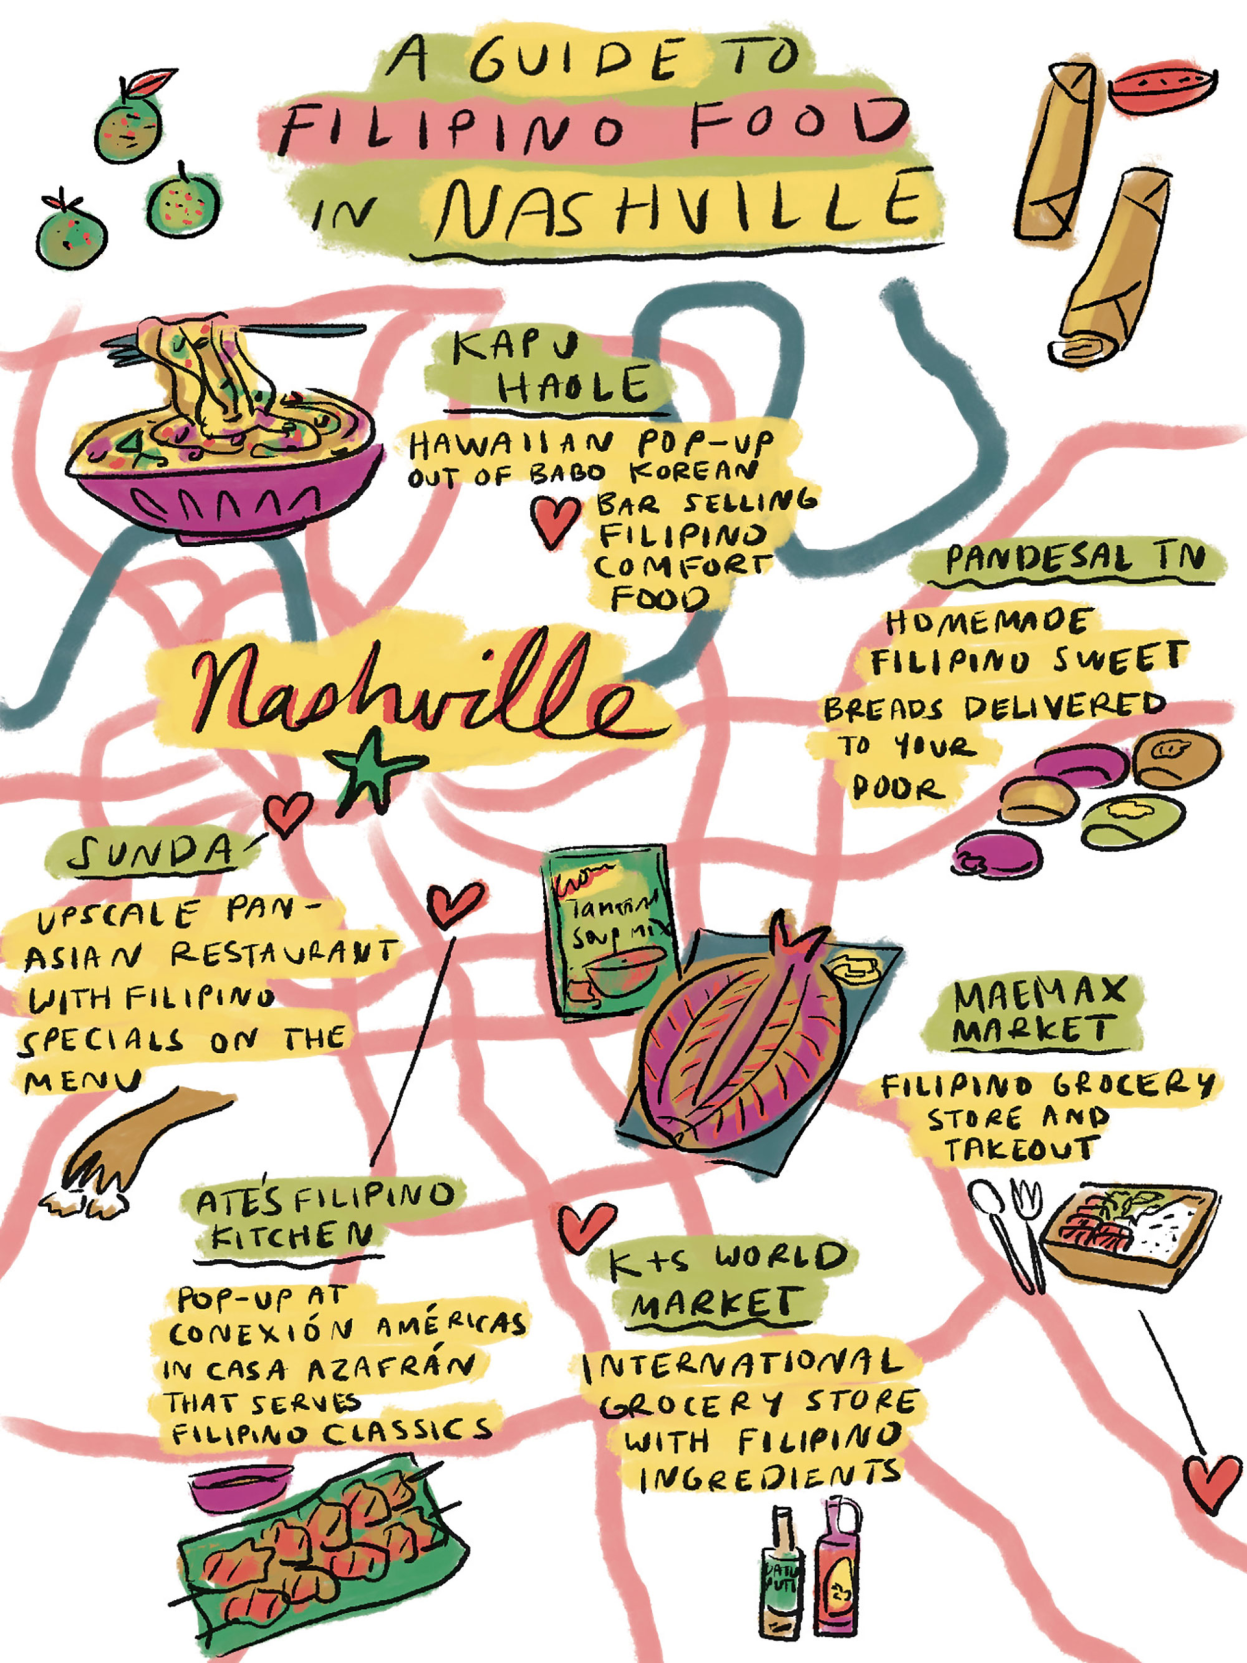 A GUIDE TO
FILIPINO FOOD
IN NASHVILLE
KAPU
HAOLE
HAWAIIAN POP-UP
OUT OF BABO KOREAN
BAR SELLING
FILIPINO
COMFORT
FOOD
PANDESAL TN
HOMEMADE
FILIPINO SWEET
BREADS DELIVERED
TO YOUR
DOOR
Nashville
SUNDA
UPSCALE PAN-
ASIAN RESTAURANT
WITH FILIPINO
SPECIALS ON THE
MENU
Soup MIX
MAEMAX
MARKET
FILIPINO GROCERY
STORE AND
TAKEOUT
ATE'S FILIPINO
KITCHEN
POP-UP AT
CONEXIÓN AMÉRICAS
IN CASA AZAFRÁN
THAT SERVES
FILIPINO CLASSICS
K+S WORLD
MARKET
INTERNATIONAL
GROCERY STORE
WITH FILIPINO
INGREDIENTS
DATU
PUTI